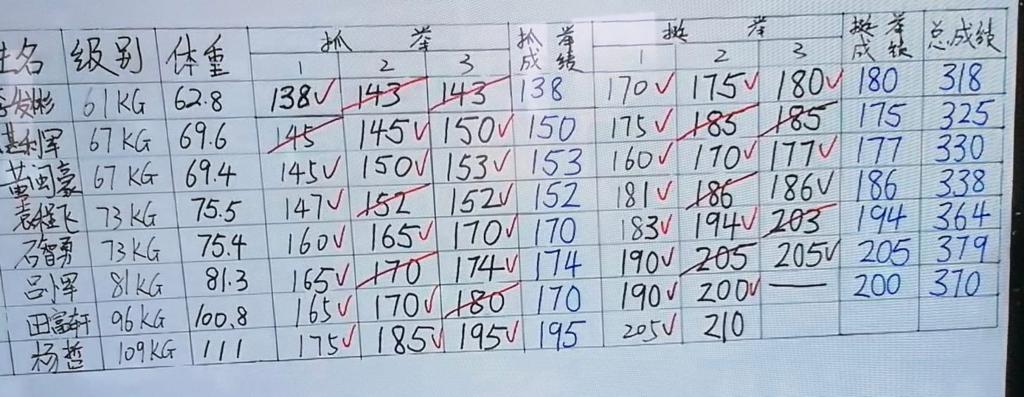 姓名 级别 体重 抓 举 抓举成绩 挺 举 挺举成绩 总成绩
1 2 3 1 2 3
61KG 62.8 138✓ 143 143 138 170✓ 175✓ 180✓ 180 318
67KG 69.6 145 145✓ 150✓ 150 175✓ 185 185 175 325
黄闽豪 67KG 69.4 145✓ 150✓ 153✓ 153 160✓ 170✓ 177✓ 177 330
袁程飞 73KG 75.5 147✓ 152 152✓ 152 181✓ 186 186✓ 186 338
石智勇 73KG 75.4 160✓ 165✓ 170✓ 170 183✓ 194✓ 203 194 364
吕小军 81KG 81.3 165✓ 170 174✓ 174 190✓ 205 205✓ 205 379
田富轩 96KG 100.8 165✓ 170✓ 180 170 190✓ 200✓ — 200 370
杨哲 109KG 111 175✓ 185✓ 195✓ 195 205✓ 210